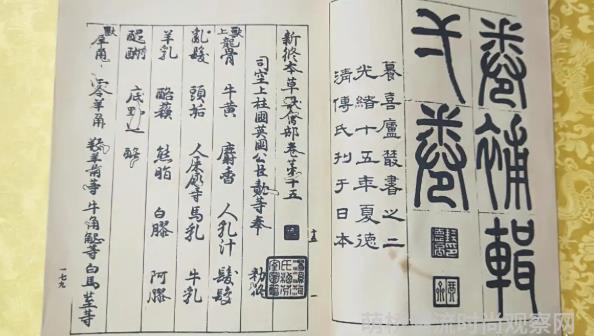 卷補輯
弌卷
籑喜廬叢書之二
光緒十五年夏德
清傅氏刊于日本
十五
一
新修本草獸禽部卷第十五
司空上柱國英國公臣勣等奉 勅修
獸上 龍骨 牛黃 麝香 人乳汁 髮髲
亂髮 頭垢 人屎等 馬乳 牛乳
羊乳 酪蘇 熊脂 白膠 阿膠
醍醐 底野迦 酪
獸 犀角 零羊角 羖羊角等 牛角䚡等 白馬莖等
一七九
流时尚观察网